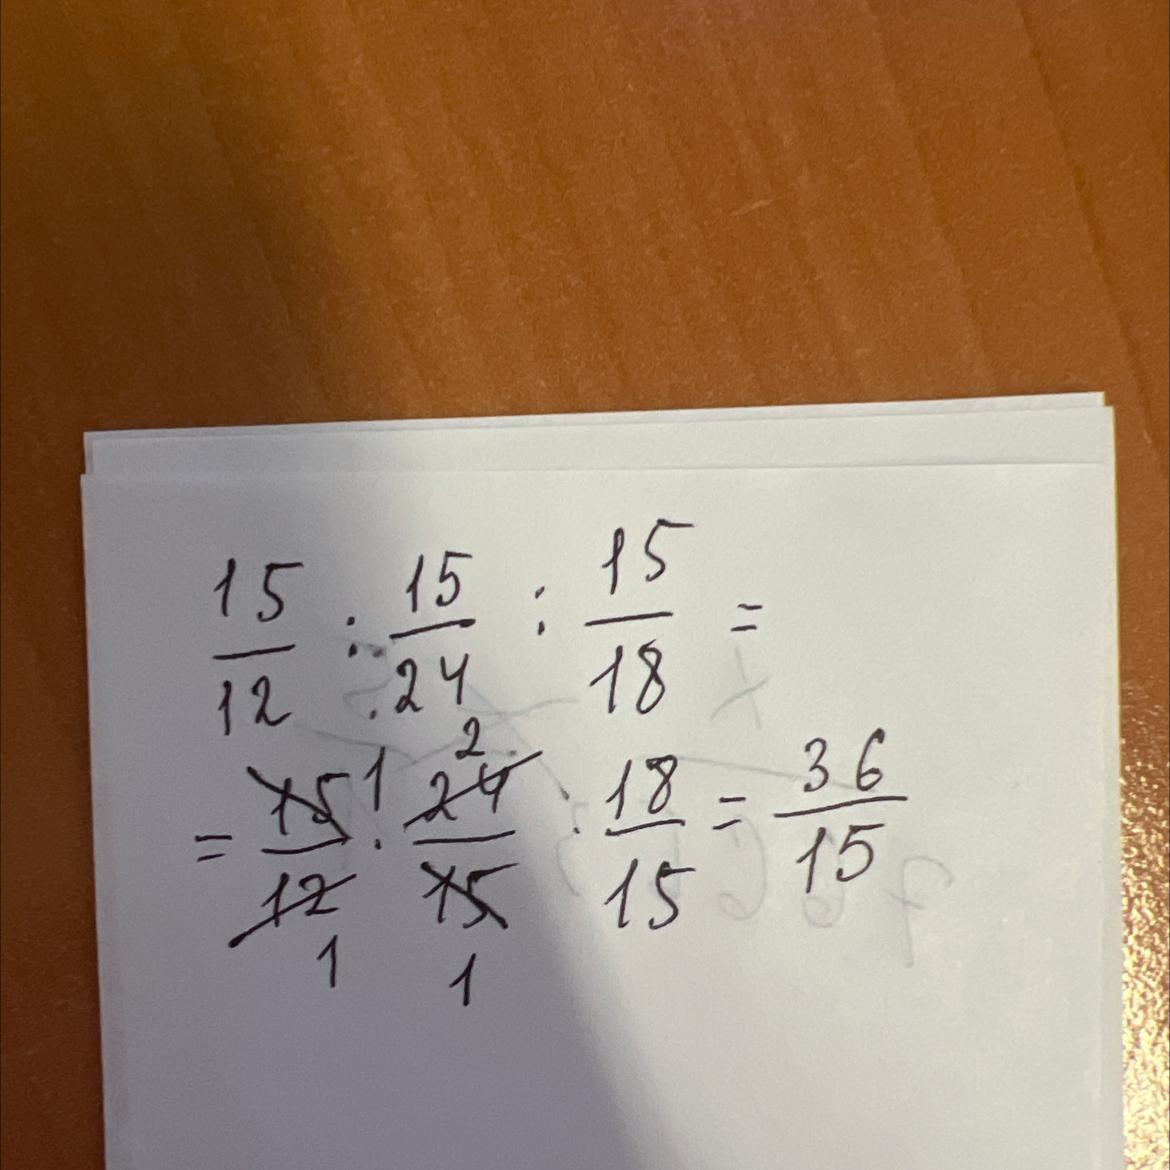 15/12 : 15/24 : 15/18 =
= 15/12 · 24/15 · 18/15 = 36/15
1 2
1 1